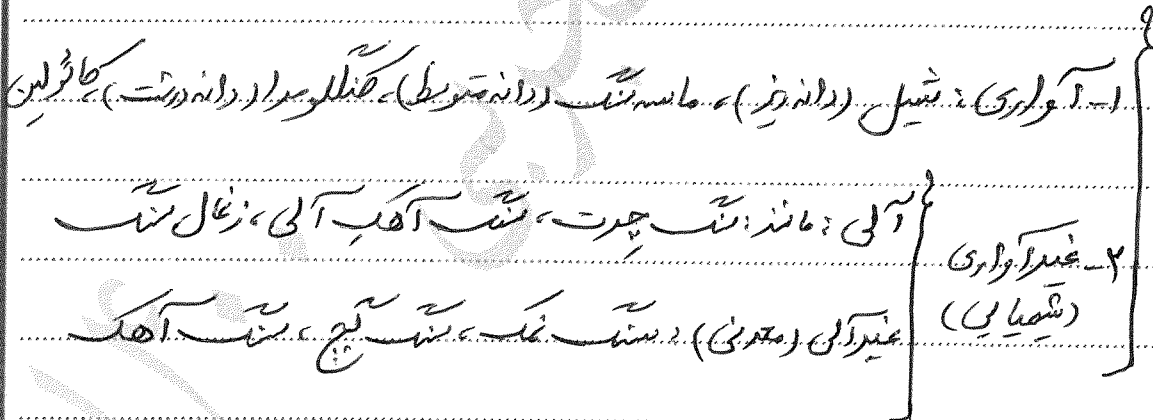 ۱- آواری: شیل (دانه ریز)، ماسه سنگ (دانه متوسط)، کنگلومرا (دانه درشت)، کائولین
۲- غیرآواری (شیمیایی)
آلی: مانند: سنگ چرت، سنگ آهک آلی، زغال سنگ
غیرآلی (معدنی): سنگ نمک، سنگ گچ، سنگ آهک